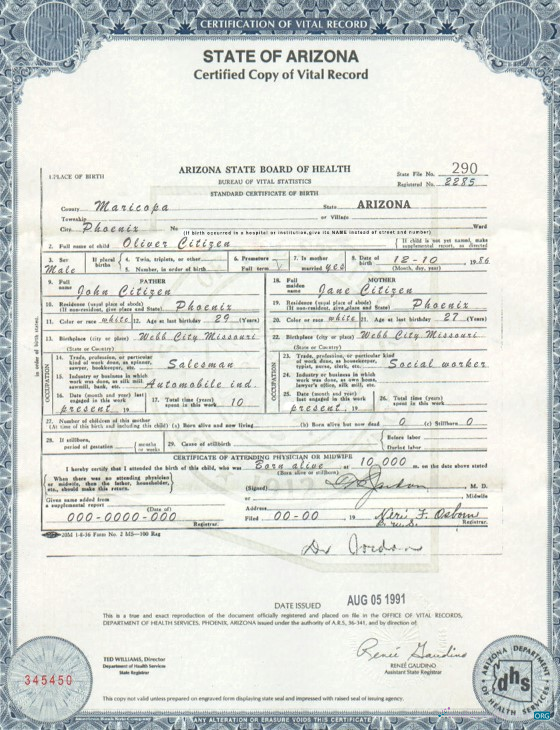 CERTIFICATION OF VITAL RECORD
STATE OF ARIZONA
Certified Copy of Vital Record
ARIZONA STATE BOARD OF HEALTH
1. PLACE OF BIRTH BUREAU OF VITAL STATISTICS State File No. 290
STANDARD CERTIFICATE OF BIRTH Registered No. 2285
County Maricopa State ARIZONA
Township or Village
City Phoenix No (If birth occurred in a hospital or institution, give its NAME instead of street and number) Ward
2. Full name of child Oliver Citizen If child is not yet named, make supplemental report, as directed
3. Sex Male If plural births 4. Twin, triplets, or other 5. Number, in order of birth 6. Premature Full term 7. Is mother married yes 8. Date of birth 12-10, 1986 (Month, day, year)
9. Full name FATHER John Citizen
18. Full maiden name MOTHER Jane Citizen
10. Residence (usual place of abode) (If non-resident, give place and State) Phoenix
19. Residence (usual place of abode) (If non-resident, give place and State) Phoenix
11. Color or race white 12. Age at last birthday 29 (Years)
20. Color or race white 21. Age at last birthday 27 (Years)
13. Birthplace (city or place) Webb City Missouri (State or Country)
22. Birthplace (city or place) Webb City Missouri (State or Country)
OCCUPATION
14. Trade, profession, or particular kind of work done, as spinner, sawyer, bookkeeper, etc. Salesman
15. Industry or business in which work was done, as silk mill, sawmill, bank, etc. Automobile ind.
16. Date (month and year) last engaged in this work present, 19
17. Total time (years) spent in this work 10
OCCUPATION
23. Trade, profession, or particular kind of work done, as housekeeper, typist, nurse, clerk, etc. Social worker
24. Industry or business in which work was done, as own home, lawyer's office, silk mill, etc.
25. Date (month and year) last engaged in this work present, 19
26. Total time (years) spent in this work
27. Number of children of this mother (At time of this birth and including this child) (a) Born alive and now living (b) Born alive but now dead 0 (c) Stillborn 0
28. If stillborn, period of gestation months or weeks 29. Cause of stillbirth Before labor During labor
CERTIFICATE OF ATTENDING PHYSICIAN OR MIDWIFE
I hereby certify that I attended the birth of this child, who was Born alive at 10,000 m. on the date above stated
(Born alive or stillborn)
When there was no attending physician or midwife, then the father, householder, etc., should make this return.
(Signed) M. D.
or Midwife
Given name added from a supplemental report (Date of)
000-0000-000
Registrar.
Address
Filed 00-00, 19 F. Osborn
Registrar.
20M 1-8-36 Form No. 2 MS-100 Reg
in order of birth stated.
DATE ISSUED AUG 05 1991
This is a true and exact reproduction of the document officially registered and placed on file in the OFFICE OF VITAL RECORDS,
DEPARTMENT OF HEALTH SERVICES, PHOENIX, ARIZONA issued under the authority of A.R.S. 36-341, and by direction of:
TED WILLIAMS, Director
Department of Health Services
State Registrar
Renée Gaudino
RENÉE GAUDINO
Assistant State Registrar
345450
ARIZONA DEPARTMENT OF HEALTH SERVICES
dhs
This copy not valid unless prepared on engraved form displaying state seal and impressed with raised seal of issuing agency.
ANY ALTERATION OR ERASURE VOIDS THIS CERTIFICATE
.ORG